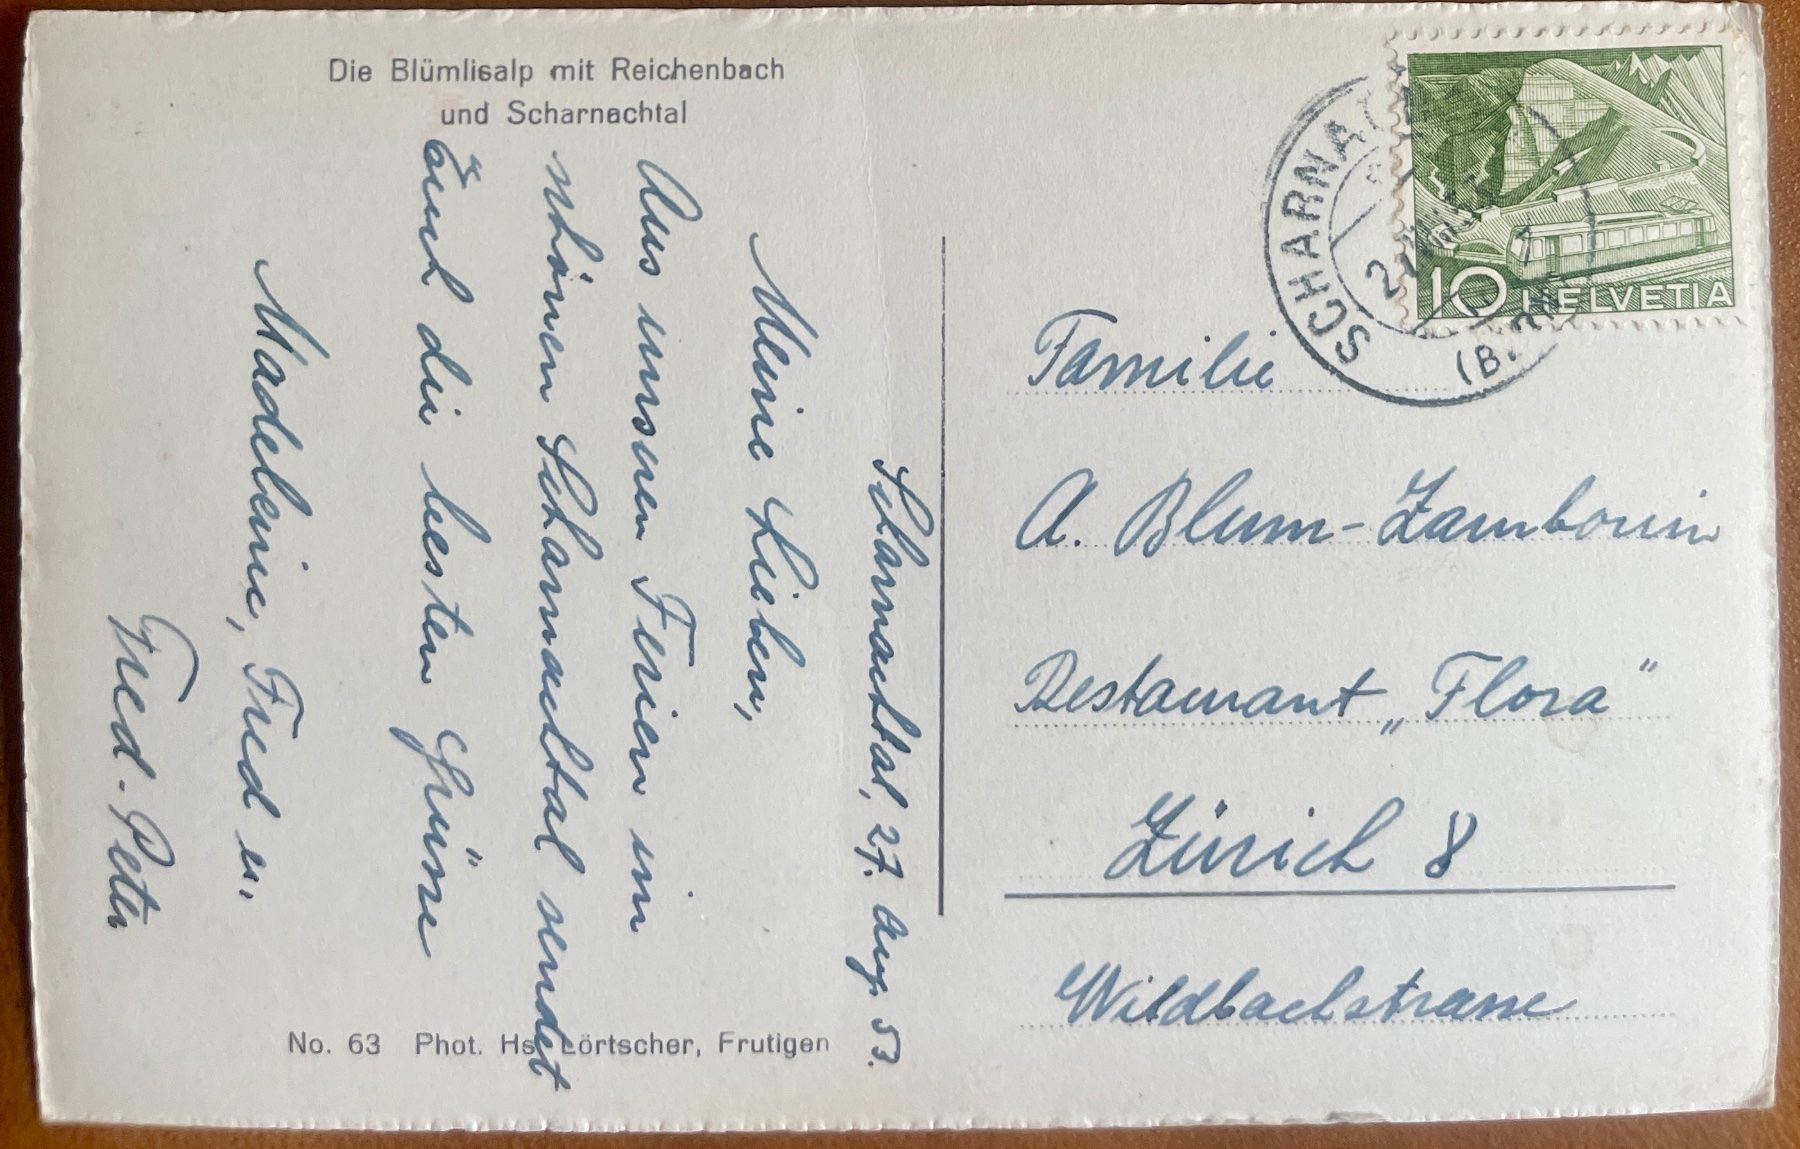 Die Blümlisalp mit Reichenbach
und Scharnachtal
Scharnachtal, 27. Aug. 53.
Meine Lieben,
Aus unseren Ferien im
schönen Scharnachtal sendet
Euch die besten Grüsse
Madeleine, Fred u.
Fred-Peter
No. 63 Phot. Hs. Lörtscher, Frutigen
SCHARNA
2
(B
10 HELVETIA
Familie
A. Blum-Zambonin
Restaurant „Flora"
Zürich 8
Wildbachstrasse